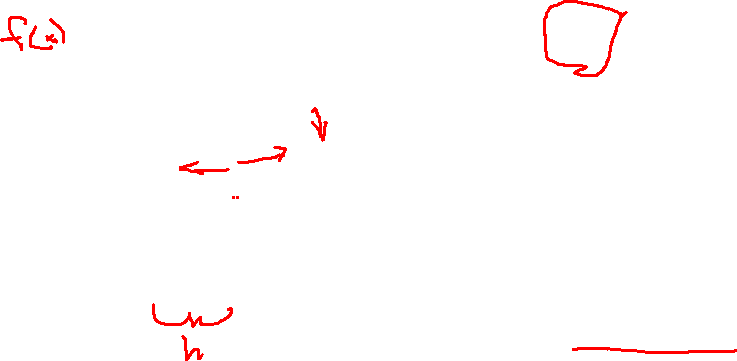 f(x)
h